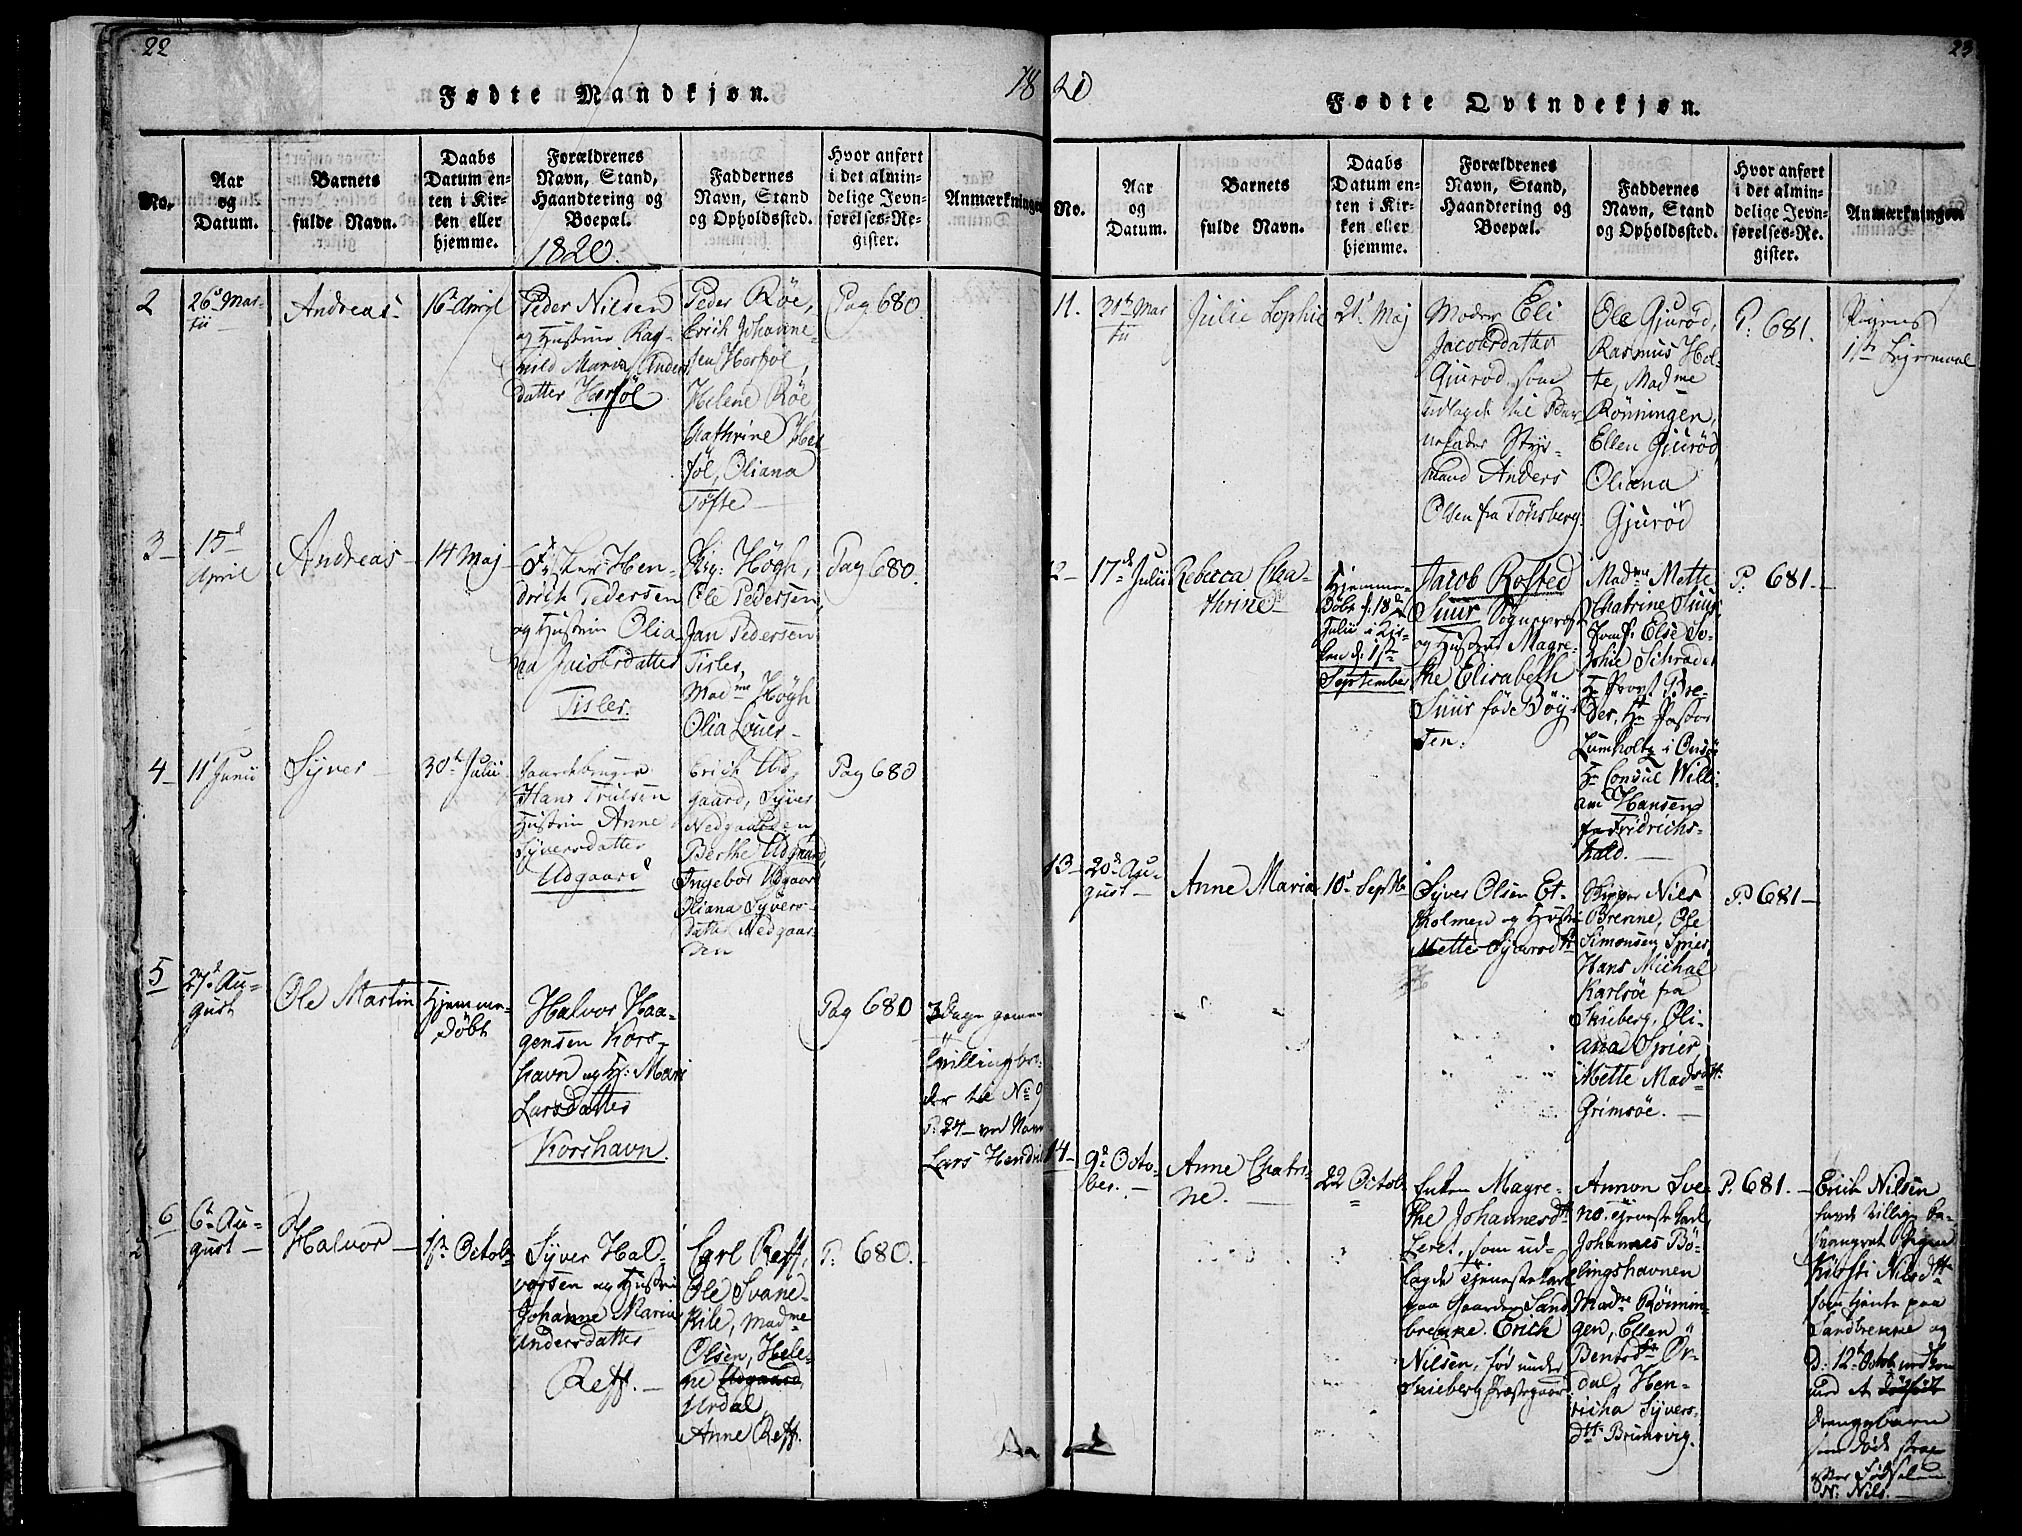 22
Fødte Mandkjøn.
18
No.
Aar
og
Datum.
Barnets
fulde Navn.
Daabs
Datum en-
ten i Kir-
ken eller
hjemme.
Forældrenes
Navn, Stand,
Haandtering og
Boepæl.
1820.
Faddernes
Navn, Stand
og Opholdssted.
Hvor anført
i det almin-
delige Jevn-
førelses-Re-
gister.
Anmærkninger
2
26d Mar-
tii
Andreas
16d April
Peder Nilsen
og Hustrue Rag-
nild Maria Anders
datter Herføl
Peder Röe,
Erich Johanne-
sen Herföl,
Helene Röe
Cathrine Her
föl, Oliana
Tøfte
Pag 680.
3
15d
April
Andreas
14 Maj
Fisker Hen-
drich Pedersen
og Hustru Olia-
na Jacobsdatter
Tisler.
Högh,
Ole Pedersen,
Jan Pedersen
Tisler,
Madme Högh
Olia Löuer
Pag 680.
4
11d Junii
Syver
30d Julii
Gaardebruger
Hans Trulsen
Hustru Anne
Syversdatter
Udgaard
Erich Ud
gaard, Syver
Nedgaarden
Berthe Udgaard,
Ingebor Udgaard
Oliana Syvers-
datter Nedgaar-
den
Pag 680
5
27d Au-
gust
Ole Martin
Hjemme-
döbt
Halvor Haa-
gensen Kors-
havn og H: Mari
Larsdatter
Korshavn.
Pag 680
3 Dage gamel
Tvillingbro-
der til No 9
P. 24 ved Navn
Lars Hendri
6
6d Au-
gust
Halvor
1st Octob
Syver Hal-
vorsen og Hustru
Johanne Maria
Andersdatter
Reff.
Carl Reff,
Ole Svane-
kile, Madme
Olsen, Hele-
ne Udgaard,
Urdal,
Anne Reff.
P: 680.
23
20
Fødte Qvindekjøn.
No.
Aar
og
Datum.
Barnets
fulde Navn.
Daabs
Datum en-
ten i Kir-
ken eller
hjemme.
Forældrenes
Navn, Stand,
Haandtering og
Boepæl.
Faddernes
Navn, Stand
og Opholdssted.
Hvor anført
i det almin-
delige Jevn-
førelses-Re-
gister.
Anmærkninger
11.
31te Mar
tii
Julie Sophie
21d Maj
Moder Eli
Jacobsdatter
Gjuröd som
udlagde til Bar-
nefader Styr-
mand Anders
Olsen fra Tönsberg
Ole Gjuröd,
Rasmus Hol-
te, Madme
Rönningen,
Ellen Gjuröd,
Oliana
Gjuröd
P. 681.
Pigens
1ste Leiermaal
12
17de Julii
Rebecca Cha-
thrine
Hjemme-
döbt d: 18de
Julii i Kir-
ken d: 1ste
September
Jacob Rosted
Suur Sognepræst
og Hustrue Magre-
the Elisabeth
Suur föde Böy-
sen.
Madme Mette
Chatrine Suur,
Jomf: Else So-
phie Schrader
Hr Provst Gre-
der, Hr Pastor
Lumholtz i Onsöe
Hr Consul Willi
am Hansen
fra Fridrichs-
hald.
P. 681
13
20de Au-
gust
Anne Maria
10d Septb
Syver Olsen Et-
holmen og Hustru
Mette Syverdtt
Skipper Nils
Brenne, Ole
Simonsen Spier,
Hans Michal
Karlsöe fra
Skieberg, Oli-
ana Spier
Mette Madsdtt
Grimsöe.
P. 681
14
9d Octo-
ber.
Anne Chatri-
ne.
22 Octob
Enken Magre-
the Johannesdtt
Leret, som ud-
lagde tjenestekarl
paa Gaarden Sand
brenne Erich
Nilsen, föd under
Skieberg Præstegaard
Anmon Sve-
no, tjenestekarl
Johannes Bö-
lingshavnen
Madme Rönnin-
gen, Ellen
Bentsdtt Ör-
dal, Hen-
richa Syvers-
dtt Brunsvig.
P. 681.
Erich Nilsen
havde tillige be-
svangret Pigen
Kirsti Nilsdtt
som tjente paa
Sandbrenne og
d: 12te Octob nedkom
med et dødfødt
drengebarn
som döde strax
efter Fødselen
N: Nils.